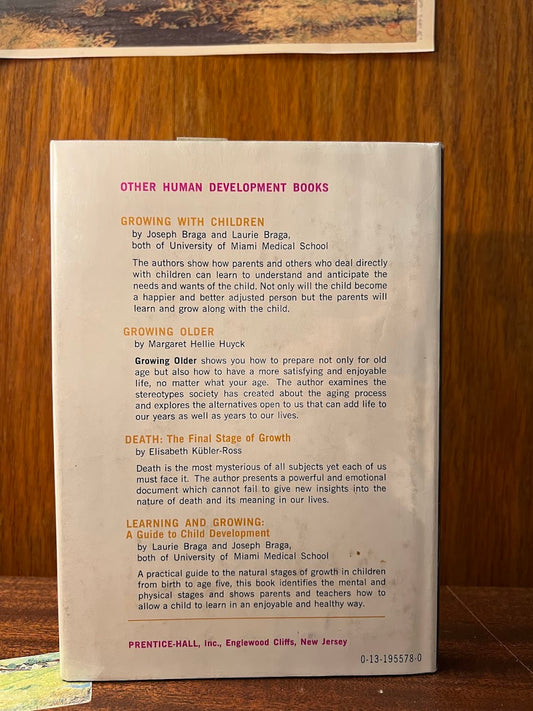 OTHER HUMAN DEVELOPMENT BOOKS
GROWING WITH CHILDREN
by Joseph Braga and Laurie Braga,
both of University of Miami Medical School
The authors show how parents and others who deal directly
with children can learn to understand and anticipate the
needs and wants of the child. Not only will the child become
a happier and better adjusted person but the parents will
learn and grow along with the child.
GROWING OLDER
by Margaret Hellie Huyck
Growing Older shows you how to prepare not only for old
age but also how to have a more satisfying and enjoyable
life, no matter what your age. The author examines the
stereotypes society has created about the aging process
and explores the alternatives open to us that can add life to
our years as well as years to our lives.
DEATH: The Final Stage of Growth
by Elisabeth Kübler-Ross
Death is the most mysterious of all subjects yet each of us
must face it. The author presents a powerful and emotional
document which cannot fail to give new insights into the
nature of death and its meaning in our lives.
LEARNING AND GROWING:
A Guide to Child Development
by Laurie Braga and Joseph Braga,
both of University of Miami Medical School
A practical guide to the natural stages of growth in children
from birth to age five, this book identifies the mental and
physical stages and shows parents and teachers how to
allow a child to learn in an enjoyable and healthy way.
PRENTICE-HALL, Inc., Englewood Cliffs, New Jersey
0-13-195578-0